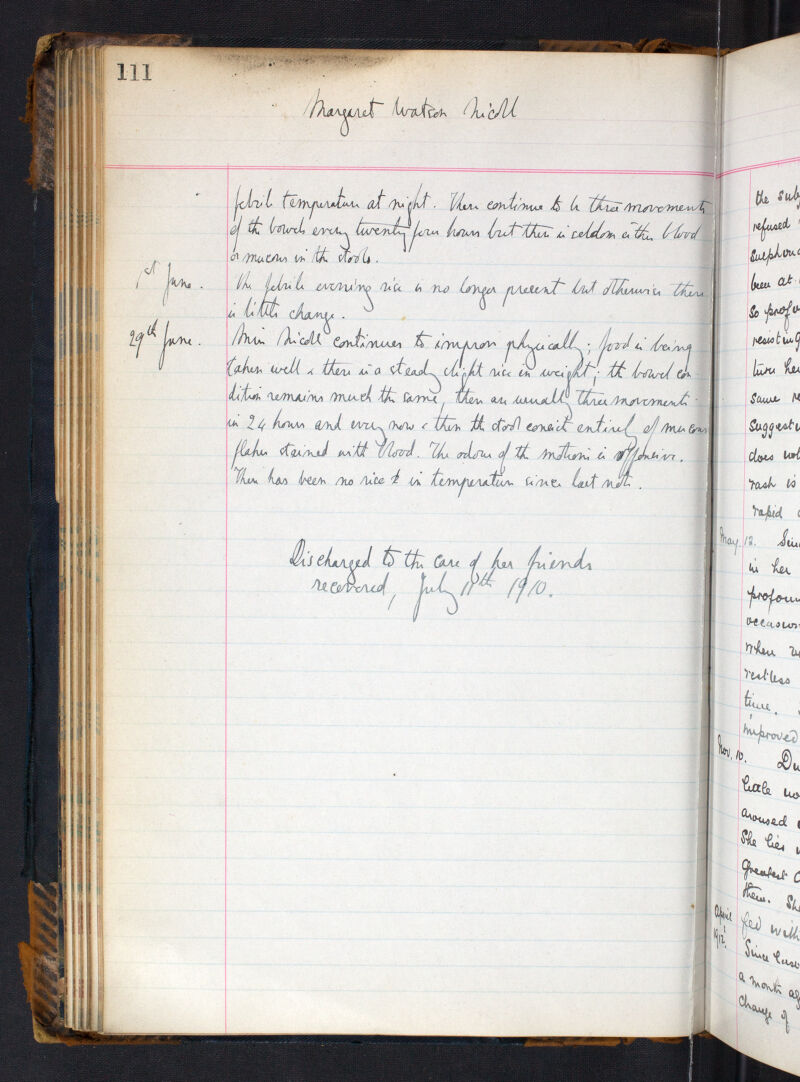 111
Margaret Watson Nicoll
febrile temperature at night. There continue to be three movements
of the bowels every twenty four hours but there is seldom either blood
or mucous in the stools.
1st June. The febrile evening rise is no longer present but otherwise there
is little change.
29th June. Miss Nicoll continues to improve physically; food is being
taken well & there is a steady slight rise in weight; the bowel con
dition remains much the same, there are usually three movements
in 24 hours and every now & then the stool consist entirely of mucous
flakes stained with blood. The odour of the motions is offensive.
There has been no rise in temperature since last note.
Discharged to the care of her friends
recovered, July 11th 1910.
the sub
refused
been at
so profo
resisting
ture her
same
suggest
does not
rash is
rapid
May. 12. Sin
in her
profou
occasion
when
restless
time.
improved
Nov. 10. Du
little no
aroused
She lies
greatest
them. She
fed with
April
1912. Since last
a month ag
change of